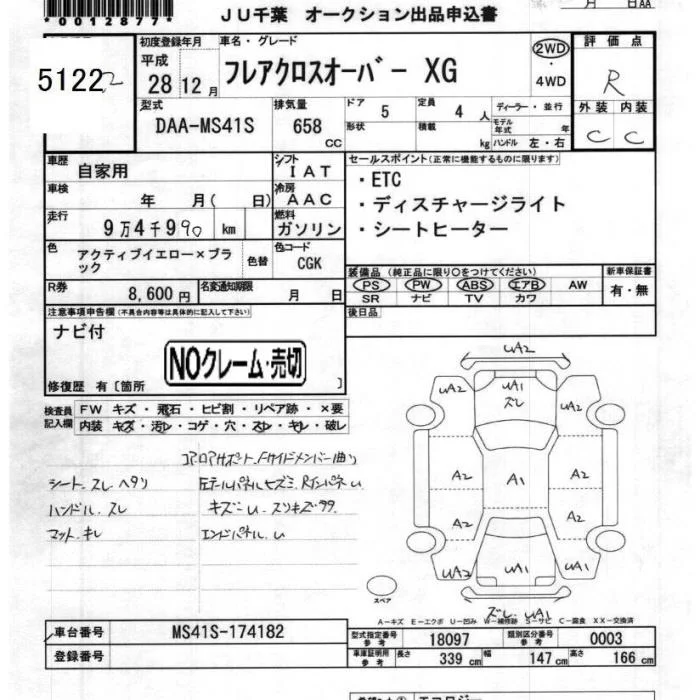 *0012877*
JU千葉 オークション出品申込書
月 日AA
51222
初度登録年月
平成
28 12 月
車名・グレード
フレアクロスオーバー XG
2WD
4WD
評価点
R
外装 内装
C C
型式
DAA-MS41S
排気量
658
cc
ドア 5
定員 4 人
形状
積載
kg
ディーラー・並行
モデル年式 年
ハンドル 左・右
車歴
自家用
シフト
I AT
車検
年 月( 日)
冷房
A AC
走行
9万4千990 km
燃料
ガソリン
色
アクティブイエロー×ブラック
色替
色コード
CGK
R券
8,600 円
名変通知期限
月 日
セールスポイント(正常に機能するものに限ります)
・ETC
・ディスチャージライト
・シートヒーター
装備品(純正品に限り○をつけてください)
PS PW ABS エアB AW
SR ナビ TV カワ
新車保証書
有・無
後日品
注意事項申告欄(不具合内容等は具体的に記入して下さい)
ナビ付
NOクレーム・売切
修復歴 有〔箇所 〕
検査員記入欄
FW キズ・飛石・ヒビ割・リペア跡・×要
内装 キズ・汚レ・コゲ・穴・スレ・キレ・破レ
コアロアサポート、Fサイドメンバー曲り
シート、スレ、ヘタリ
ハンドル、スレ
キズU、スリキズ多々
マット、キレ
エンドパネル、U
UA2
UA2 UA1 UA2
ズレ
A2 A1 A2
A2 A2
UA2 UA1 UA1
ズレ、UA1
スペア
A-キズ E-エクボ U-凹み W-補修跡 S-サビ C-腐食 XX-交換済
車台番号
MS41S-174182
登録番号
型式指定番号 参考
18097
類別区分番号 参考
0003
車庫証明用 参考
長さ 339 cm
幅 147 cm
高さ 166 cm